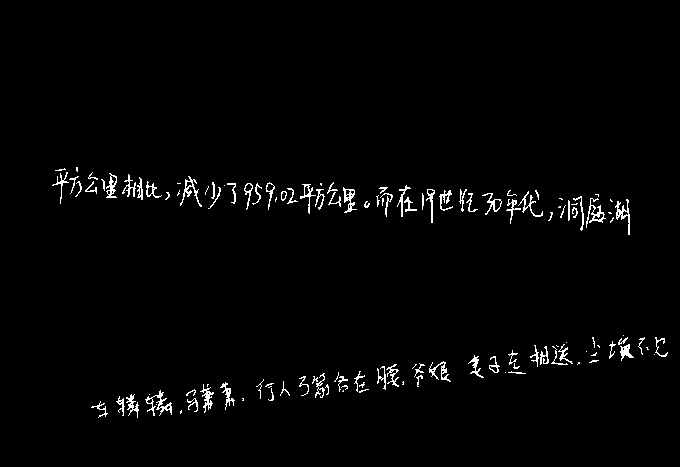 平方公里相比，减少了959.02平方公里。而在19世纪30年代，洞庭湖
车辚辚，马萧萧，行人弓箭各在腰，爷娘妻子走相送，尘埃不见